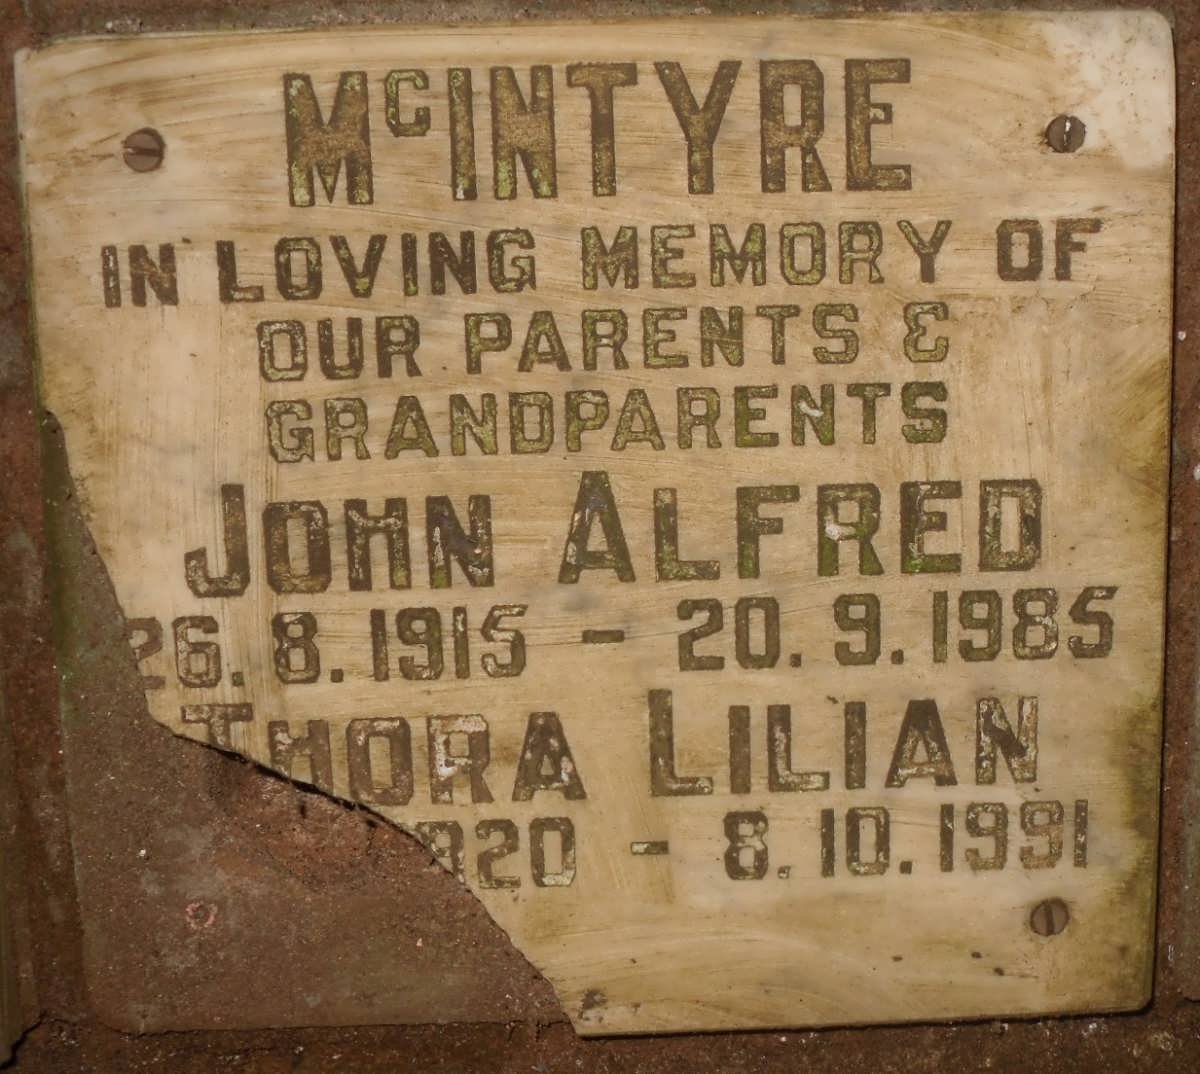 McINTYRE
IN LOVING MEMORY OF
OUR PARENTS &
GRANDPARENTS
JOHN ALFRED
26.8.1915 - 20.9.1985
THORA LILIAN
920 - 8.10.1991